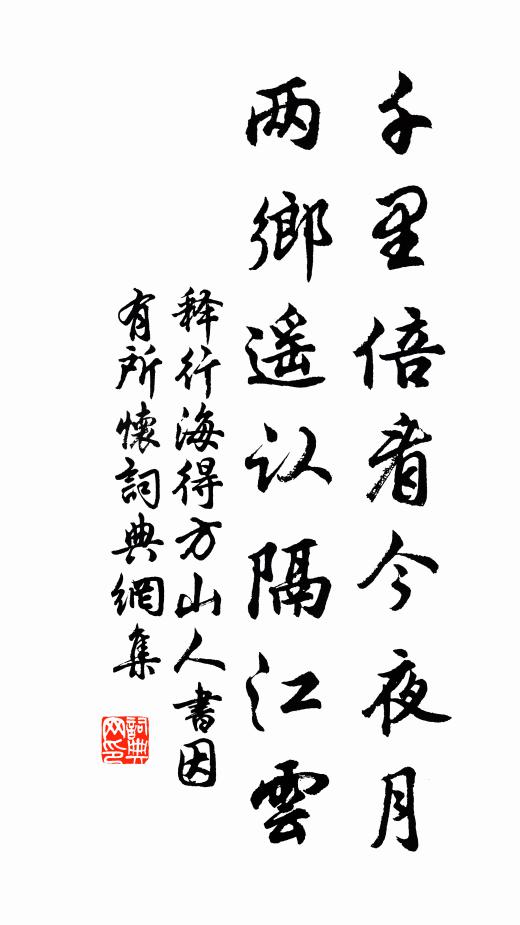 千里倍看今夜月
两鄉遥认隔江雲
释行海得方山人書因
有所懷詞典網集
詞典网印